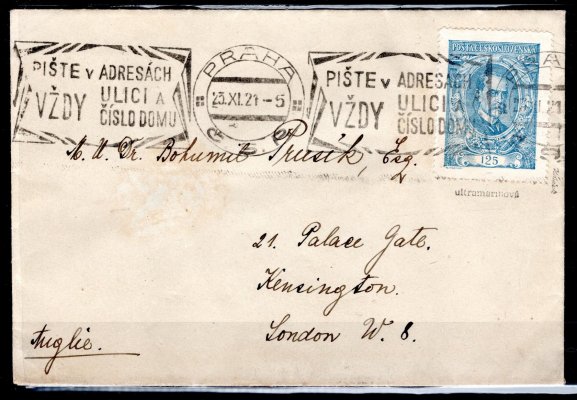 PIŠTE V ADRESÁCH
VŽDY ULICI A
ČÍSLO DOMU
PRAHA
23.XI.21-5
PIŠTE V ADRESÁCH
VŽDY ULICI A
ČÍSLO DOMU
POŠTA ČESKOSLOVENSKÁ
125
M. U. Dr. Bohumil Prusík, Esq.
ultramarínová
21. Palace Gate.
Kensington.
London W. 8.
Anglie.